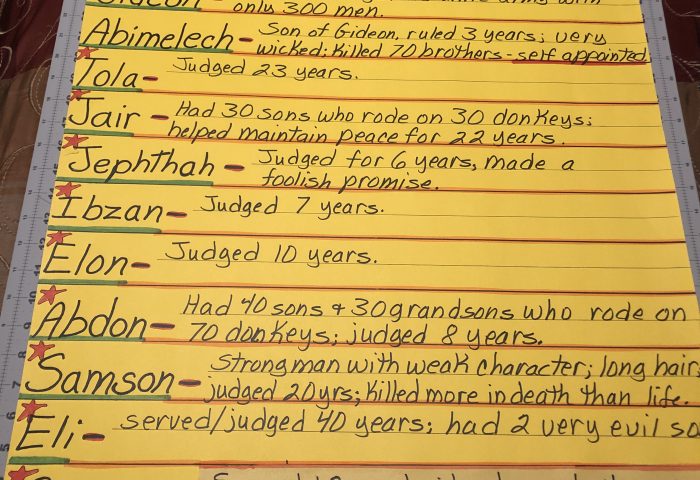 only 300 men.
Abimelech - Son of Gideon, ruled 3 years; very
wicked; killed 70 brothers - self appointed
Tola - Judged 23 years.
Jair - Had 30 sons who rode on 30 donkeys;
helped maintain peace for 22 years.
Jephthah - Judged for 6 years, made a
foolish promise.
Ibzan - Judged 7 years.
Elon - Judged 10 years.
Abdon - Had 40 sons + 30 grandsons who rode on
70 donkeys; judged 8 years.
Samson - Strongman with weak character; long hair;
judged 20yrs; killed more in death than life.
Eli - served/judged 40 years; had 2 very evil so